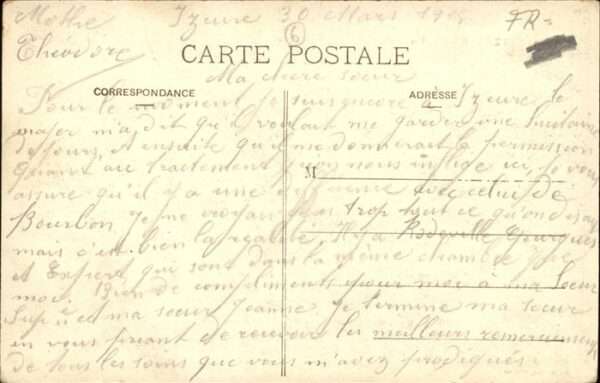 Mothe Yzeure 30 Mars 19
Théodore
6
FR-
CARTE POSTALE
Ma chère soeur
CORRESPONDANCE
ADRESSE
Pour le moment je suis encore à Yzeure le
major m'a dit qu'il voulait me garder une huitaine
de jours, et ensuite qu'il me donnerait la permission
quant au traitement qu'on nous inflige ici, je vous
M
assure qu'il y a une différence avec celui de
Bourbon, je ne croyais pas trop tout ce qu'on disait
mais c'est bien la réalité. Il y a
et Expert qui sont dans la même chambre que
moi. Bien de compliments pour moi à ma Soeur
Supre et ma soeur Jeanne. Je termine ma soeur
en vous priant de recevoir les meilleurs remerciements
de tous les soins que vous m'avez prodigués.